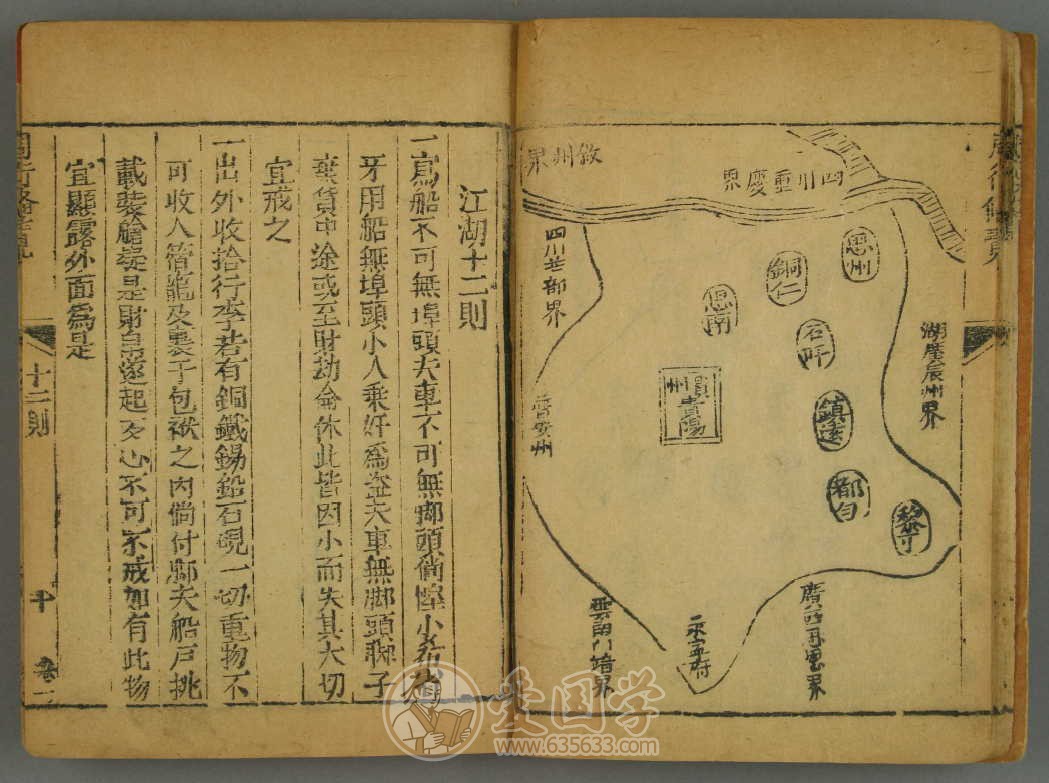 敘州界
四川重慶界
四川芒部界
思州
銅仁
思南
石阡
鎮遠
都勻
黎平
貴州
貴陽
湖廣辰州界
普安州
永寧府
江湖十二則
一寫船不可無埠頭夫車不可無腳頭倘慳小希獨
牙用船無埠頭小人乗奸為盗夫車無脚頭脚子
棄貨中途或至財劫命休此皆因小而失其大切
宜戒之
一出外收拾行李若有銅鐵錫鉛石硯一切重物不
可收入箱籠及裹于包袱之内倘付脚夫船戸挑
載裝艙疑是財帛遂起歹心不可不戒如有此物
宜顯露外面為是
十二則
十
卷一
爱国学
www.635633.com